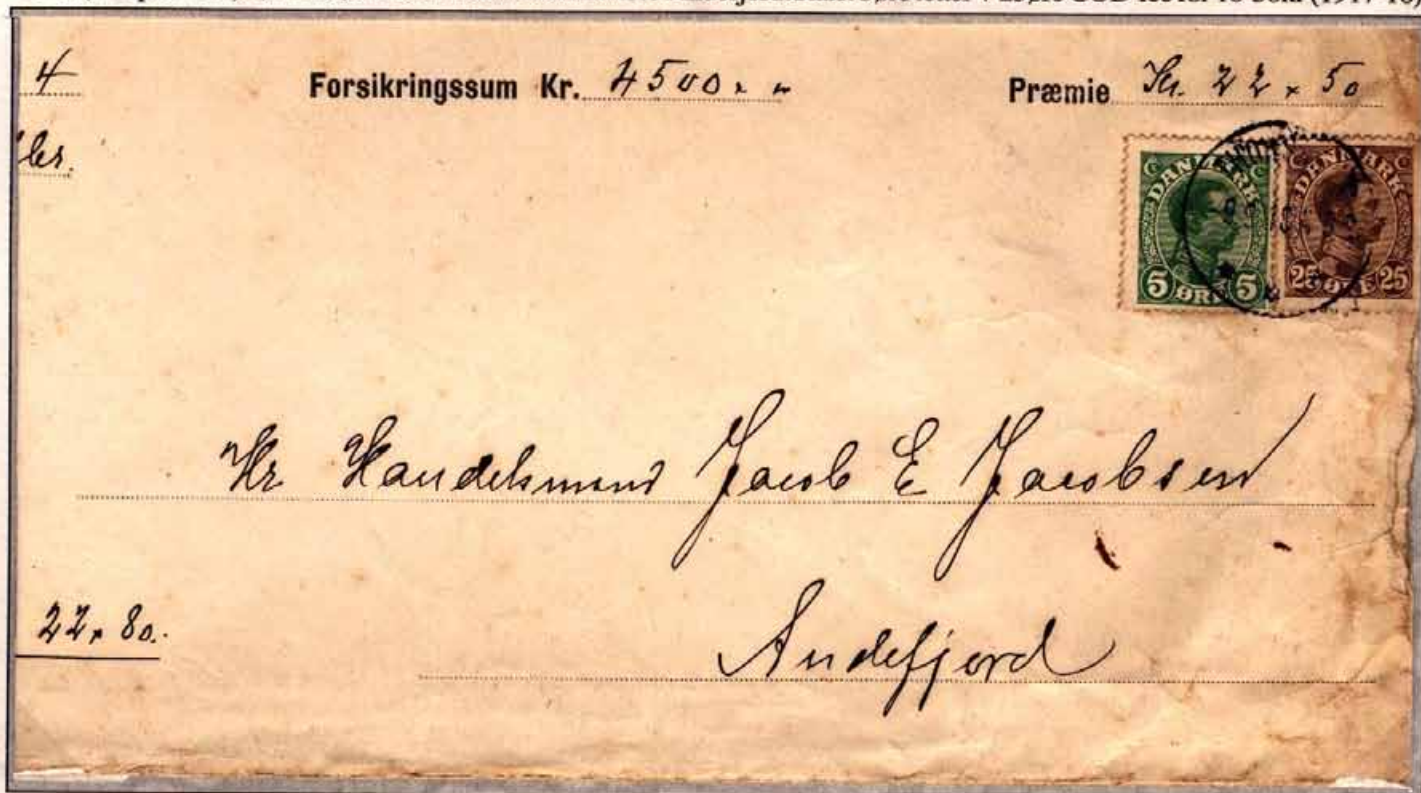 (1917-18)
4 Forsikringssum Kr. 4500 Præmie Kr. 22 50
DANMARK DANMARK
5 ØRE 5 25 ØRE 25
Hr Handelsmand Jacob E Jacobsen
22 80.
Andefjord